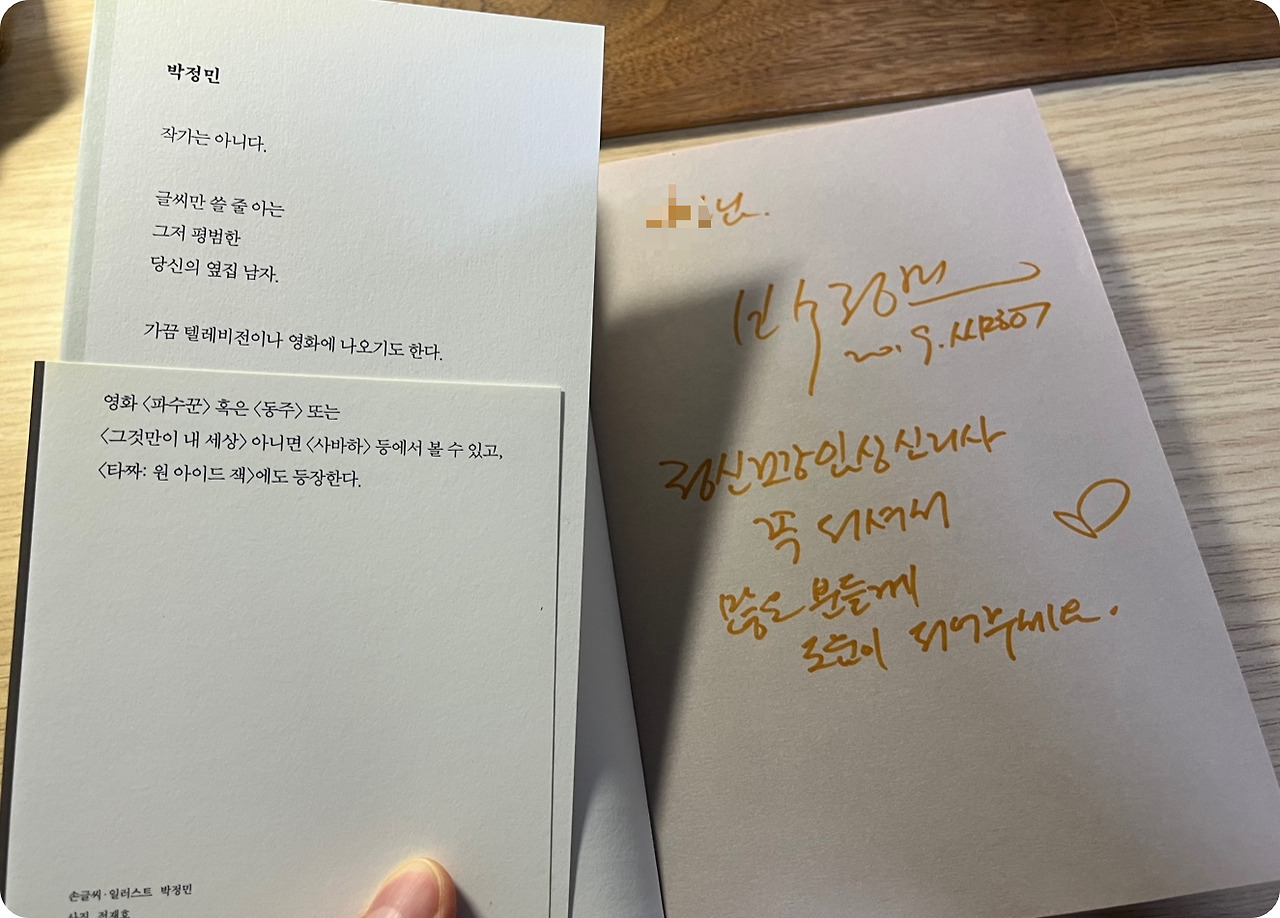 박정민
작가는 아니다.
글씨만 쓸 줄 아는
그저 평범한
당신의 옆집 남자.
가끔 텔레비전이나 영화에 나오기도 한다.
영화 〈파수꾼〉 혹은 〈동주〉 또는
〈그것만이 내 세상〉 아니면 〈사바하〉 등에서 볼 수 있고,
〈타짜: 원 아이드 잭〉에도 등장한다.
손글씨·일러스트 박정민
사진 전재호
님.
박정민
정신건강임상심리사
꼭 되셔서
많은 분들께
도움이 되어주세요.